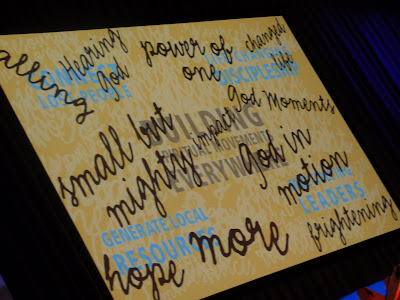 calling
Hearing
God
power of
one
changed
life
CONNECT
LOST PEOPLE
DISCIPLESHIP
God Moments
small but
mighty
impact
God in
motion
BUILDING
SPIRITUAL MOVEMENTS
EVERYWHERE
GENERATE LOCAL
RESOURCES
LEADERS
hope
more
frightening